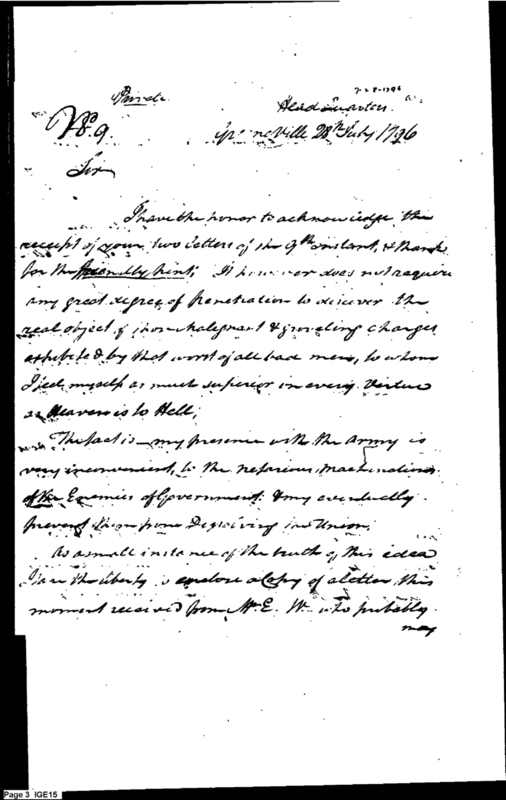 7-28-1796
Private
Head Quarters
No. 9.
Greeneville 28th July 1796
Sir
I have the honor to acknowledge the
receipt of your two letters of the 9th instant, & thank
for the friendly hint; It however does not require
any great degree of penetration to discover the
real object of those malignant & groveling charges
exhibited by that worst of all bad men, to whom
I feel myself as much superior in every virtue
as Heaven is to Hell;
The fact is my presence with the Army is
very inconvenient, to the nefarious machinations
of the Enemies of Government & may eventually
prevent them from Dissolving the Union.
As a small instance of the truth of this idea
I take the liberty to enclose a Copy of a letter this
moment received from Mr. E. W. who probably
may
Page 3 IGE15